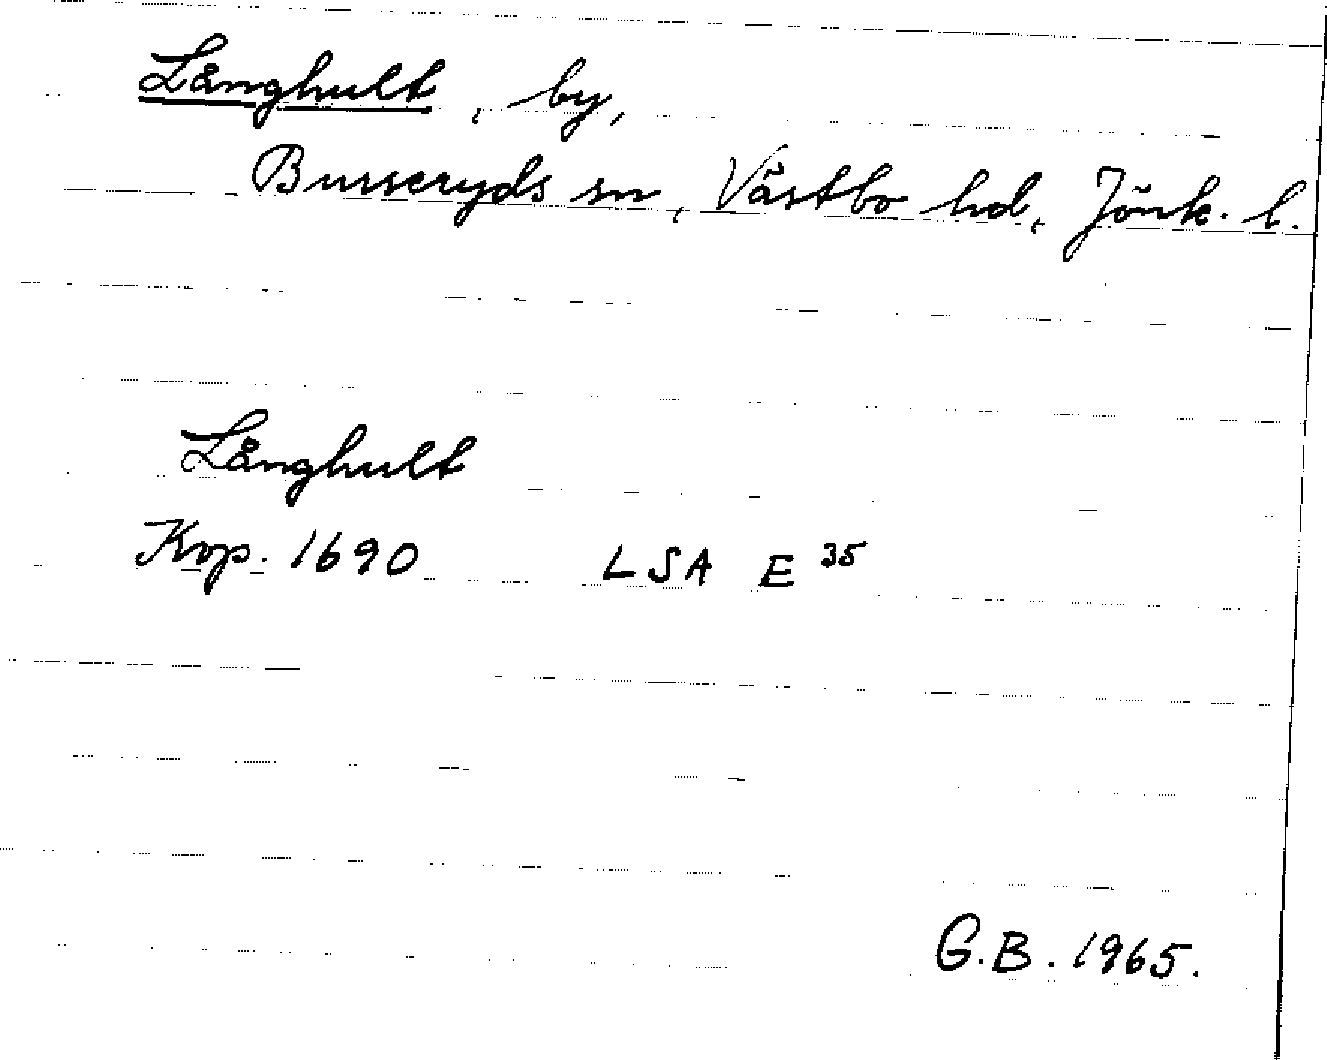 Långhult, by,
Burseryds sn, Västbo hd, Jönk. l.
Långhult
Kop. 1690 LSA E 35
G.B. 1965.